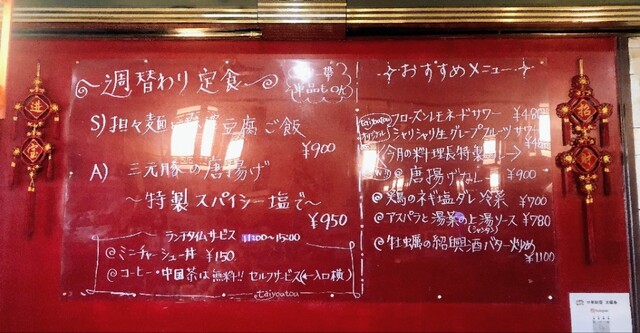 〜週替わり定食〜
単品もOK
S) 担々麺 豆腐ご飯
¥900
A) 三元豚の唐揚げ
〜特製スパイシー塩で〜
¥950
ランチタイムサービス 11:00〜15:00
@ミニチャーシュー丼 ¥150
@コーヒー・中国茶は無料!! セルフサービス(←入口横)
taiyoutou
おすすめメニュー
taiyoutou フローズンレモネードサワー ¥480
オリジナル シャリシャリ生グレープフルーツサワー
今月の料理長特製
唐揚げ ¥900
@鶏のネギ塩ダレ冷菜 ¥700
@アスパラと湯菜の上湯ソース ¥780
(シャンタン)
@牡蠣の紹興酒バター炒め
¥1100
進
宝